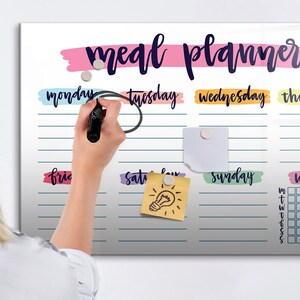 meal planner
monday tuesday wednesday thu
frid saturday sunday
M
T
W
T
F
S
S